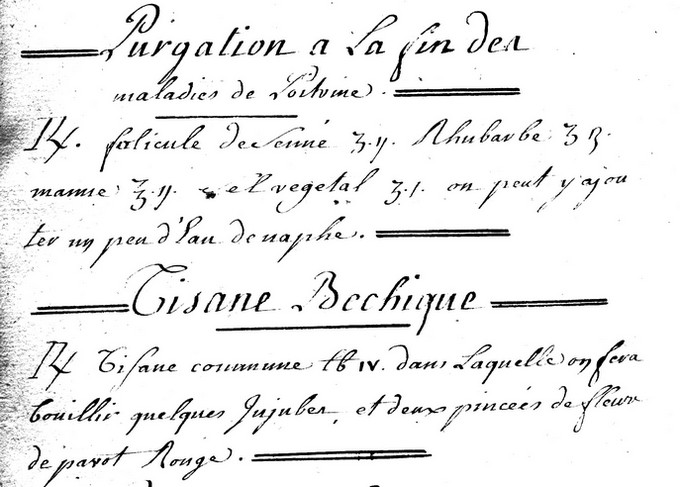 Purgation a La fin des
maladies de Poitrine.
℞. folicule de Senné ʒ.ij. Rhubarbe ʒ ß.
manne ℥.ij. sel vegetal ʒ.j. on peut y ajou
ter un peu d'Eau de naphe.
Tisane Bechique
℞ Tisane commune ℔ iv. dans Laquelle on fera
bouillir quelques Jujubes, et deux pincées de fleurs
de pavot Rouge.